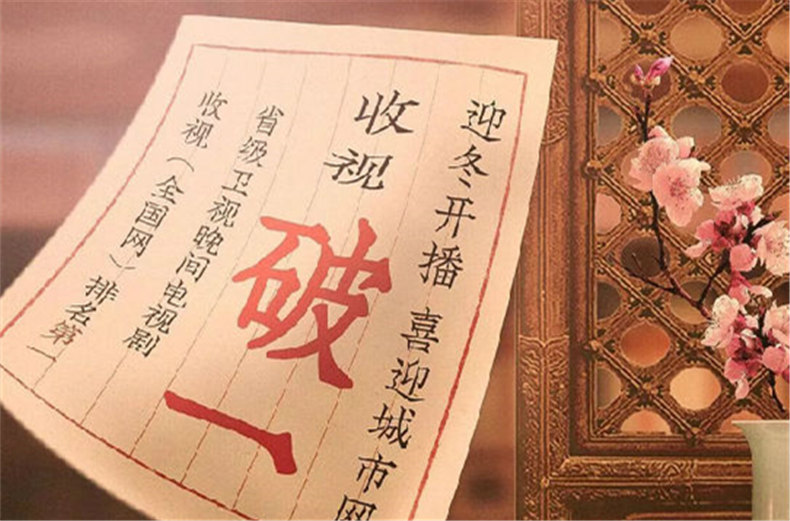 迎冬开播 喜迎城市网
收视
破一
省级卫视晚间电视剧
收视（全国网）排名第一